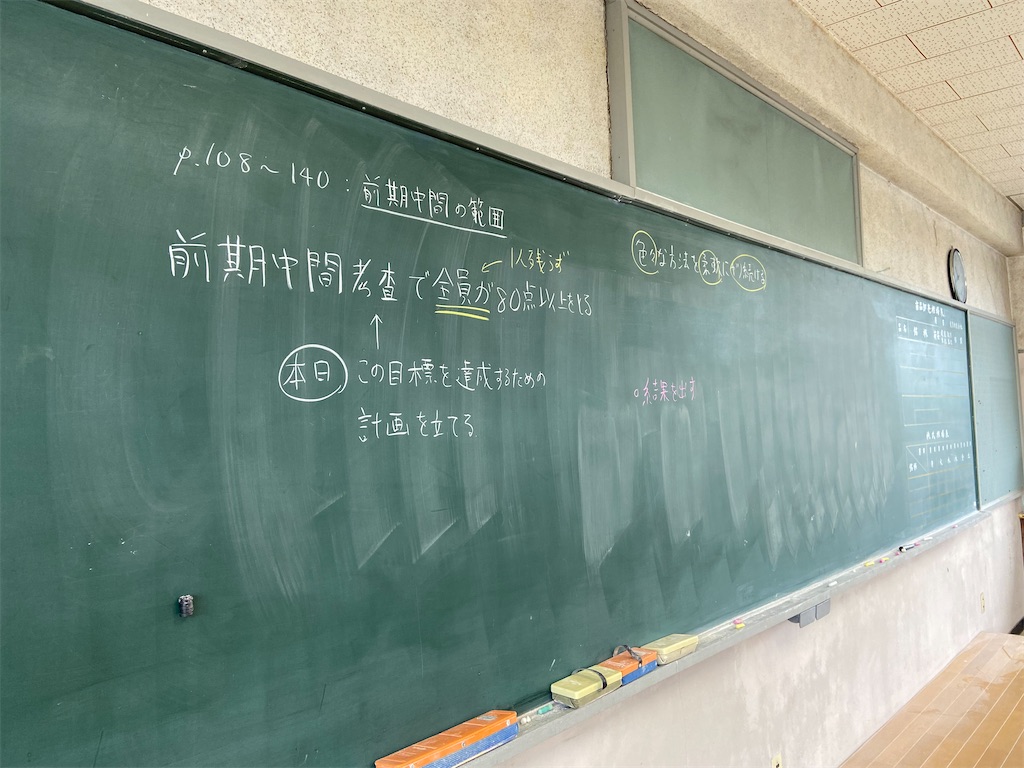 p.108~140:前期中間の範囲
前期中間考査で全員が80点以上をとる
1人残らず
本日 この目標を達成するための
計画を立てる
色々な方法を柔軟にやり続ける
結果を出す